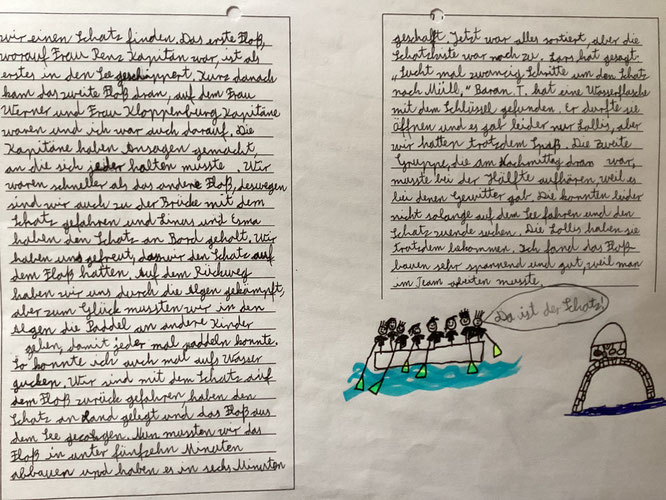 wir einen Schatz finden. Das erste Floß,
worauf Frau Renz Kapitän war, ist als
erstes in den See geschippert. Kurz danach
kam das zweite Floß dran, auf dem Frau
Werner und Frau Kloppenburg Kapitäne
waren und ich war auch darauf. Die
Kapitäne haben Ansagen gemacht,
an die sich jeder halten musste. Wir
waren schneller als das andere Floß, deswegen
sind wir auch zu der Brücke mit dem
Schatz gefahren und Linus und Esma
haben den Schatz an Bord geholt. Wir
haben uns gefreut, dass wir den Schatz auf
dem Floß hatten. Auf dem Rückweg
haben wir uns durch die Algen gekämpft,
aber zum Glück mussten wir in den
Algen die Paddel an andere Kinder
geben, damit jeder mal paddeln konnte.
So konnte ich auch mal aufs Wasser
gucken. Wir sind mit dem Schatz auf
dem Floß zurück gefahren haben den
Schatz an Land gelegt und das Floß aus
dem See gezogen. Nun mussten wir das
Floß in unter fünfzehn Minuten
abbauen und haben es in sechs Minuten
geschaft. Jetzt war alles sortiert, aber die
Schatzkiste war noch zu. Lars hat gesagt:
„Sucht mal zwanzig Schritte um den Schatz
nach Müll." Baran T. hat eine Wasserflasche
mit dem Schlüssel gefunden. Er durfte sie
öffnen und es gab leider nur Lollis, aber
wir hatten trotzdem Spaß. Die zweite
Gruppe, die am Nachmittag dran war,
musste bei der Hälfte aufhören, weil es
bei denen Gewitter gab. Die konnten leider
nicht solange auf dem See fahren und den
Schatz zuende suchen. Die Lollis haben sie
trotzdem bekommen. Ich fand das Floß-
bauen sehr spannend und gut, weil man
im Team arbeiten musste.
Da ist der Schatz!